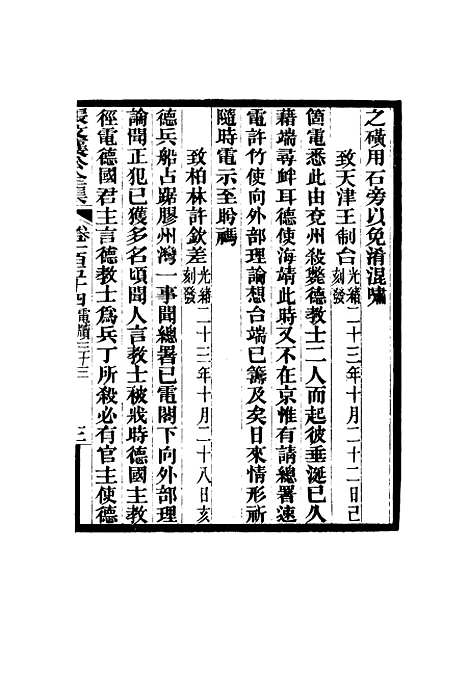 之磺用石旁以免淆混嘯
致天津王制台光緒二十三年十月二十二日己刻發
箇電悉此由兗州殺斃德教士二人而起彼垂涎已久
藉端尋衅耳德使海靖此時又不在京惟有請總署速
電許竹使向外部理論想台端已籌及矣日來情形祈
隨時電示至盼禡
致柏林許欽差光緒二十三年十月二十八日亥刻發
德兵船占踞膠州灣一事聞總署已電閣下向外部理
論聞正犯已獲多名頃聞人言教士被戕時德國主教
徑電德國君主言德教士爲兵丁所殺必有官主使德
張文襄公全集 卷一百五十四 電牘三十三 三